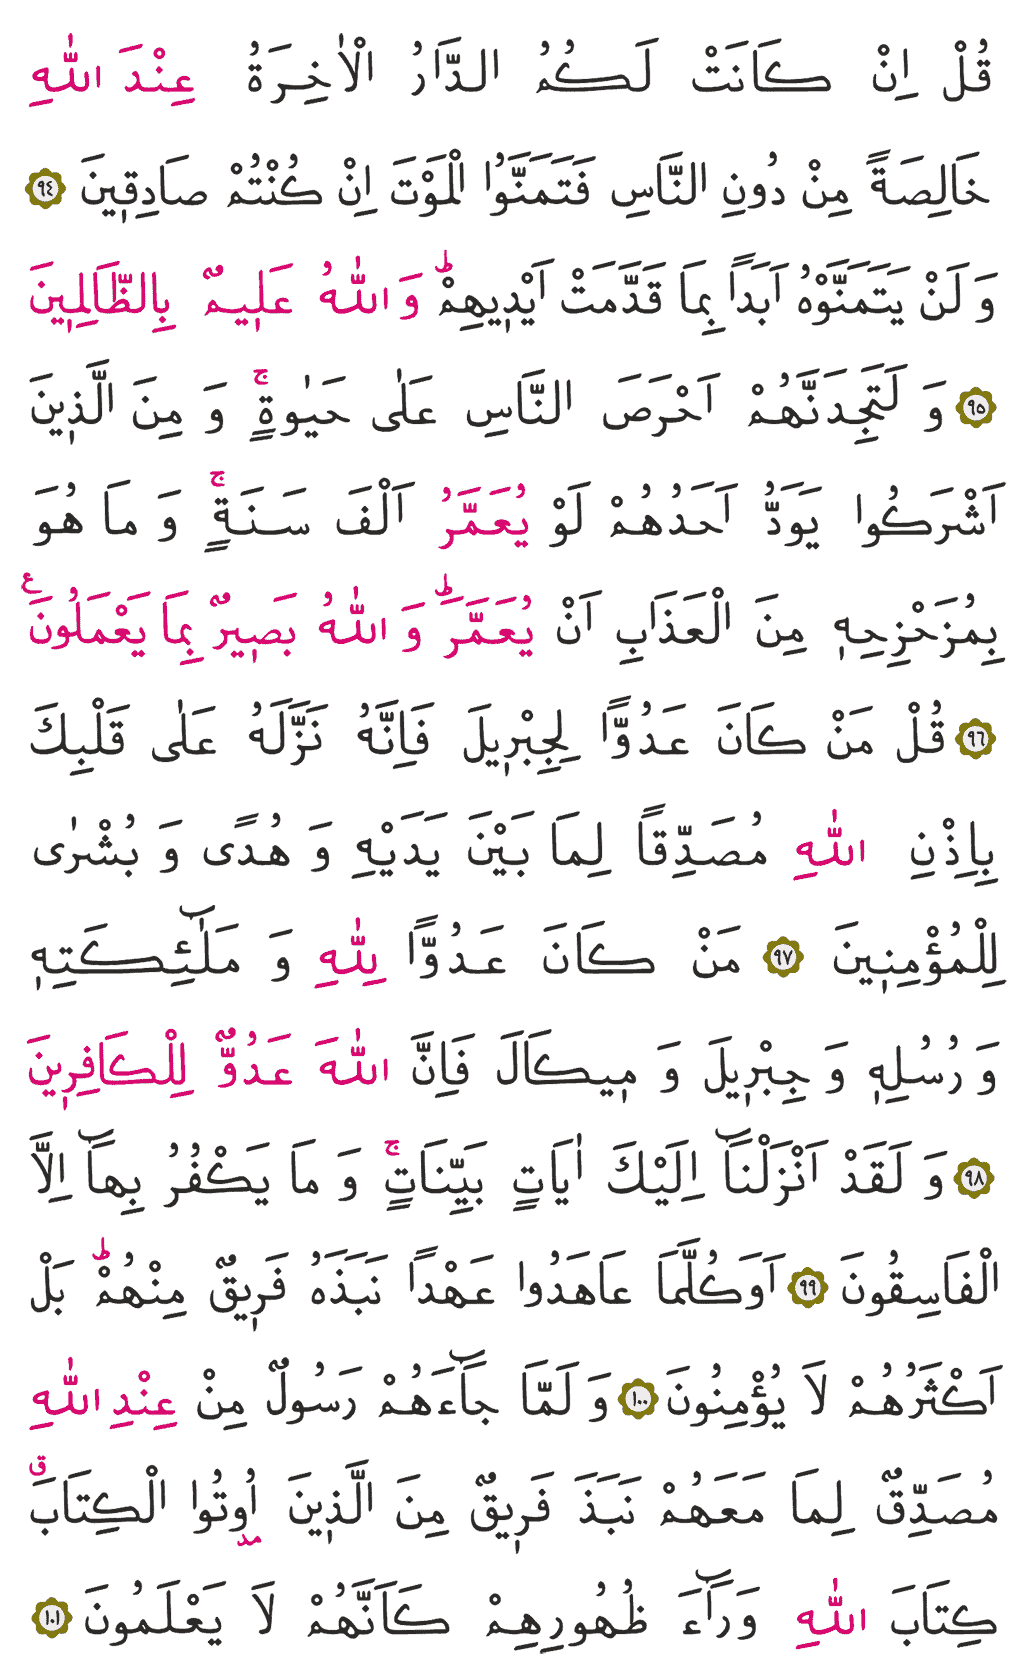 قُلْ اِنْ كَانَتْ لَكُمُ الدَّارُ الْاٰخِرَةُ عِنْدَ اللّٰهِ
خَالِصَةً مِنْ دُونِ النَّاسِ فَتَمَنَّوُا الْمَوْتَ اِنْ كُنْتُمْ صَادِق۪ينَ ﴿٩٤﴾
وَ لَنْ يَتَمَنَّوْهُ اَبَداً بِمَا قَدَّمَتْ اَيْد۪يهِمْؕ وَ اللّٰهُ عَل۪يمٌ بِالظَّالِم۪ينَ
﴿٩٥﴾ وَ لَتَجِدَنَّهُمْ اَحْرَصَ النَّاسِ عَلٰى حَيٰوةٍۚ وَ مِنَ الَّذ۪ينَ
اَشْرَكُوا يَوَدُّ اَحَدُهُمْ لَوْ يُعَمَّرُ اَلْفَ سَنَةٍۚ وَ مَا هُوَ
بِمُزَحْزِحِه۪ مِنَ الْعَذَابِ اَنْ يُعَمَّرَؕ وَ اللّٰهُ بَص۪يرٌ بِمَا يَعْمَلُونَ ع
﴿٩٦﴾ قُلْ مَنْ كَانَ عَدُوًّا لِجِبْر۪يلَ فَاِنَّهُ نَزَّلَهُ عَلٰى قَلْبِكَ
بِاِذْنِ اللّٰهِ مُصَدِّقاً لِمَا بَيْنَ يَدَيْهِ وَ هُدًى وَ بُشْرٰى
لِلْمُؤْمِن۪ينَ ﴿٩٧﴾ مَنْ كَانَ عَدُوًّا لِلّٰهِ وَ مَلٰٓئِكَتِه۪
وَ رُسُلِه۪ وَ جِبْر۪يلَ وَ م۪يكَالَ فَاِنَّ اللّٰهَ عَدُوٌّ لِلْكَافِر۪ينَ
﴿٩٨﴾ وَ لَقَدْ اَنْزَلْنَٓا اِلَيْكَ اٰيَاتٍ بَيِّنَاتٍۚ وَ مَا يَكْفُرُ بِهَٓا اِلَّا
الْفَاسِقُونَ ﴿٩٩﴾ اَوَكُلَّمَا عَاهَدُوا عَهْداً نَبَذَهُ فَر۪يقٌ مِنْهُمْؕ بَلْ
اَكْثَرُهُمْ لَا يُؤْمِنُونَ ﴿١٠٠﴾ وَ لَمَّا جَٓاءَهُمْ رَسُولٌ مِنْ عِنْدِ اللّٰهِ
مُصَدِّقٌ لِمَا مَعَهُمْ نَبَذَ فَر۪يقٌ مِنَ الَّذ۪ينَ اُو۫تُوا الْكِتَابَۗ
كِتَابَ اللّٰهِ وَرَٓاءَ ظُهُورِهِمْ كَاَنَّهُمْ لَا يَعْلَمُونَ ﴿١٠١﴾